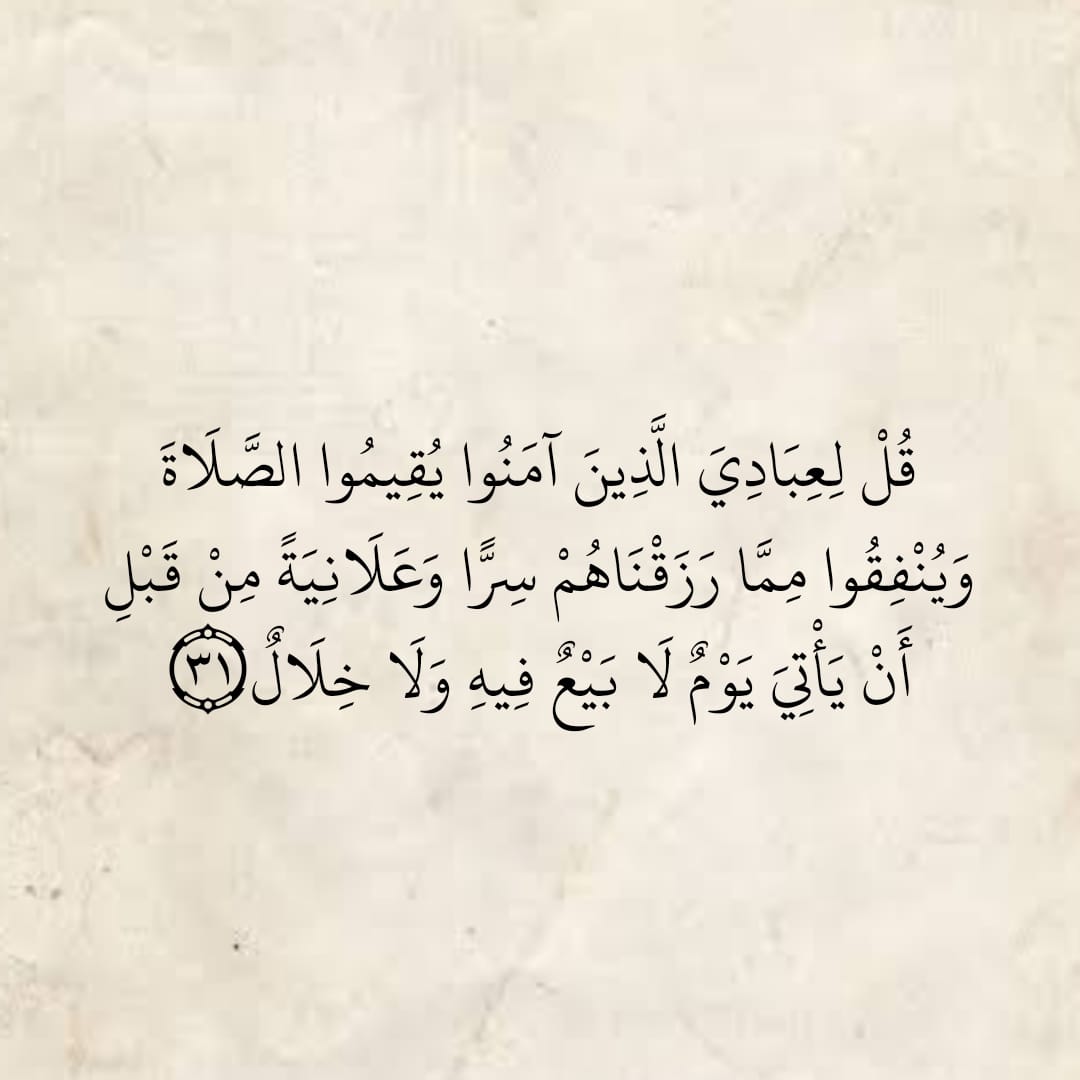 قُلْ لِعِبَادِيَ الَّذِينَ آمَنُوا يُقِيمُوا الصَّلَاةَ
وَيُنْفِقُوا مِمَّا رَزَقْنَاهُمْ سِرًّا وَعَلَانِيَةً مِنْ قَبْلِ
أَنْ يَأْتِيَ يَوْمٌ لَا بَيْعٌ فِيهِ وَلَا خِلَالٌ ٣١